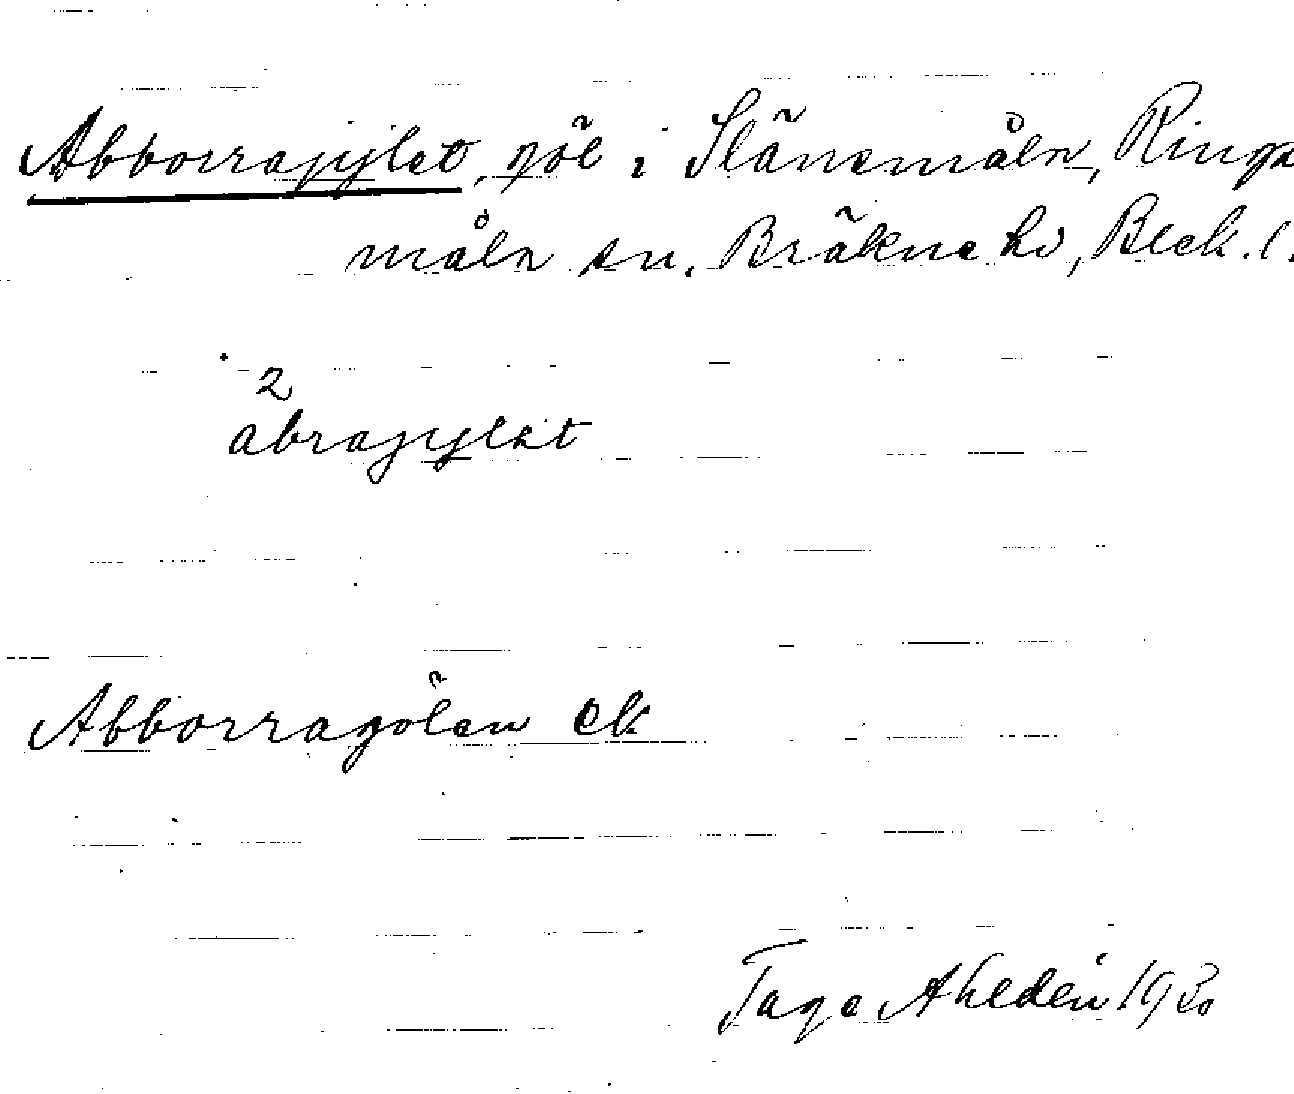 Abborrajylet, göl i Slänemåla, Ringa
måla sn. Bräkne hd, Blek. l.
2
abrajylxt
Abborragölen ek
Tage Ahledén 1930